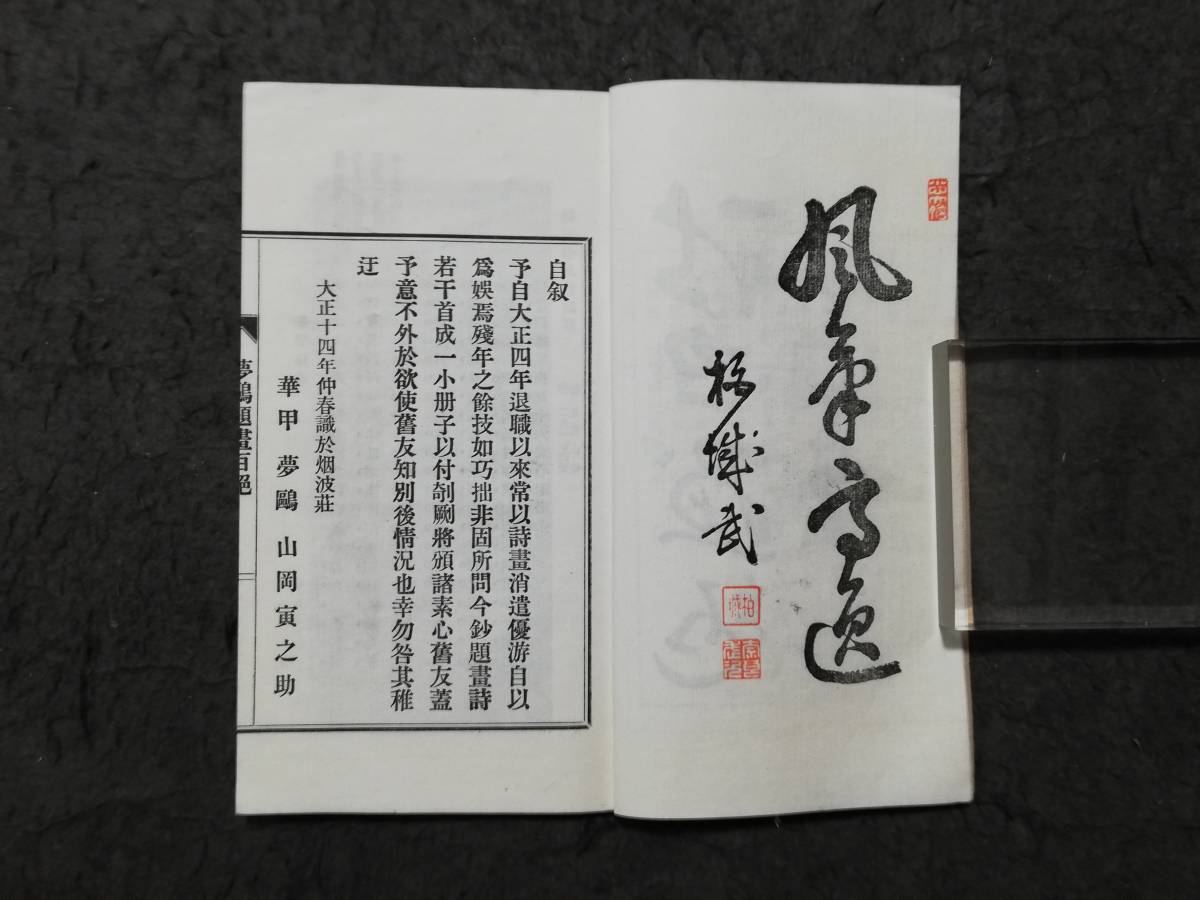 風氣高逸
柏城武
柏城
自叙
予自大正四年退職以來常以詩畫消遣優游自以
爲娛焉殘年之餘技如巧拙非固所問今鈔題畫詩
若干首成一小册子以付剞劂將頒諸素心舊友蓋
予意不外於欲使舊友知別後情況也幸勿咎其稚
迂
大正十四年仲春識於烟波莊
華甲 夢鷗 山岡寅之助
夢鷗題畫百絕